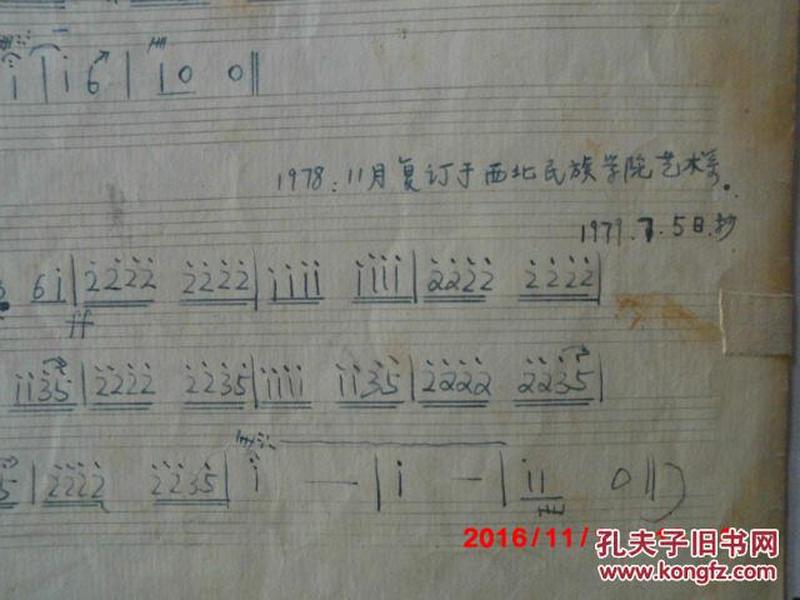 i | i 6 | 10 0 ||
1978.11月复订于西北民族学院艺术系.
1979.7.5日.抄
6i | 2222 2222 | iiii iiii | 2222 2222 |
ff
ii35 | 2222 2235 | iiii ii35 | 2222 2235 |
5 | 2222 2235 | i — | i — | ii 0 || )
2016/11/
孔夫子旧书网
www.kongfz.com